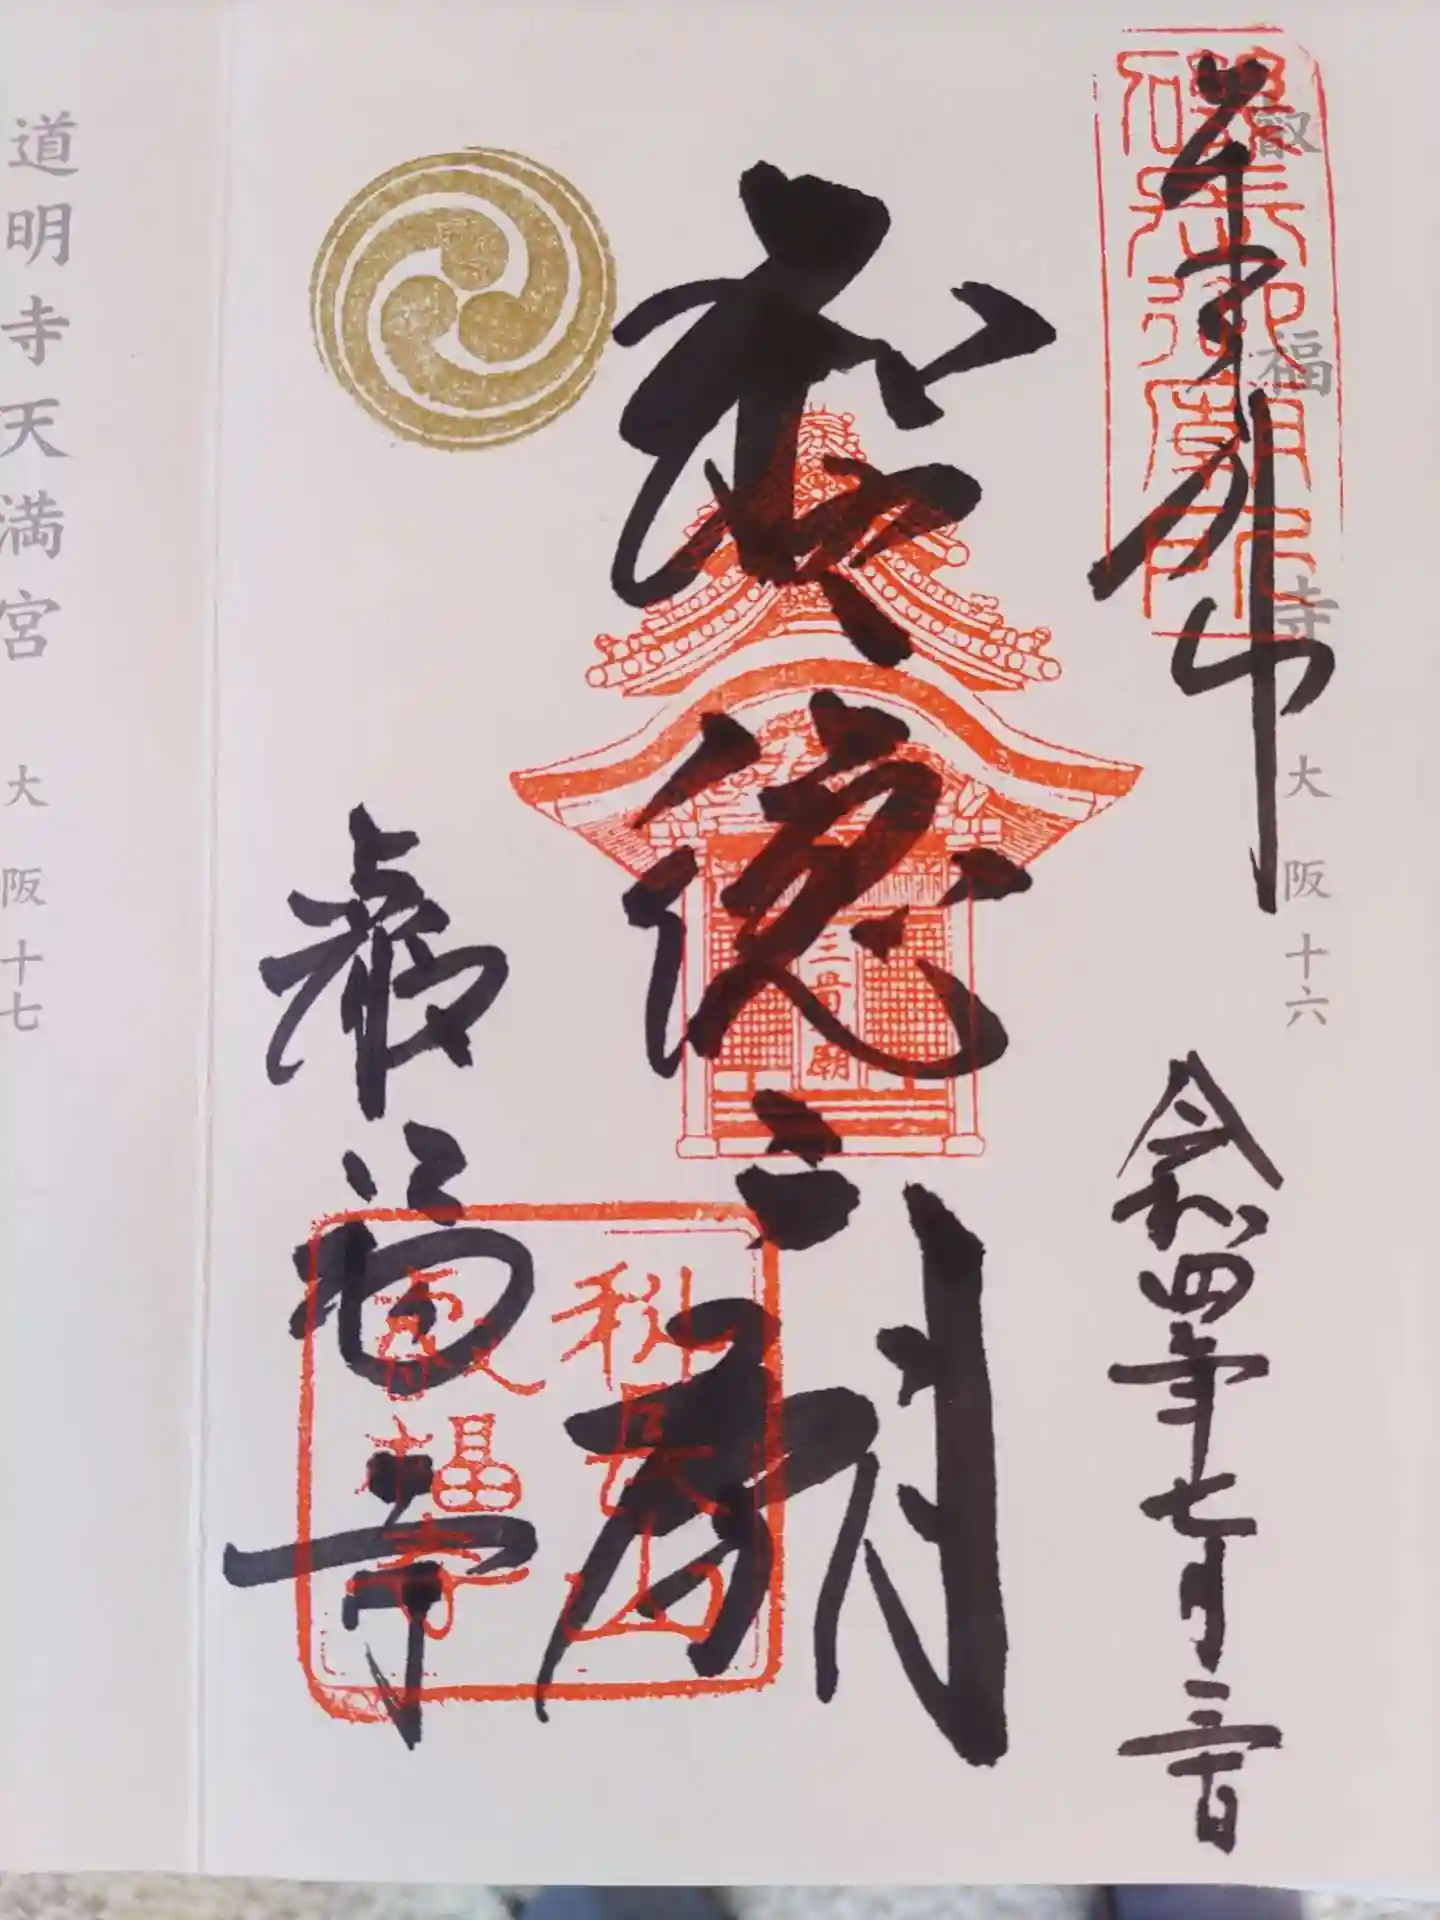 叡福寺 大阪十六
奉拝
磯長御廟所
令和四年七月三十日
聖徳廟
三骨一廟
叡福寺
科長山
叡福寺
道明寺天満宮 大阪十七